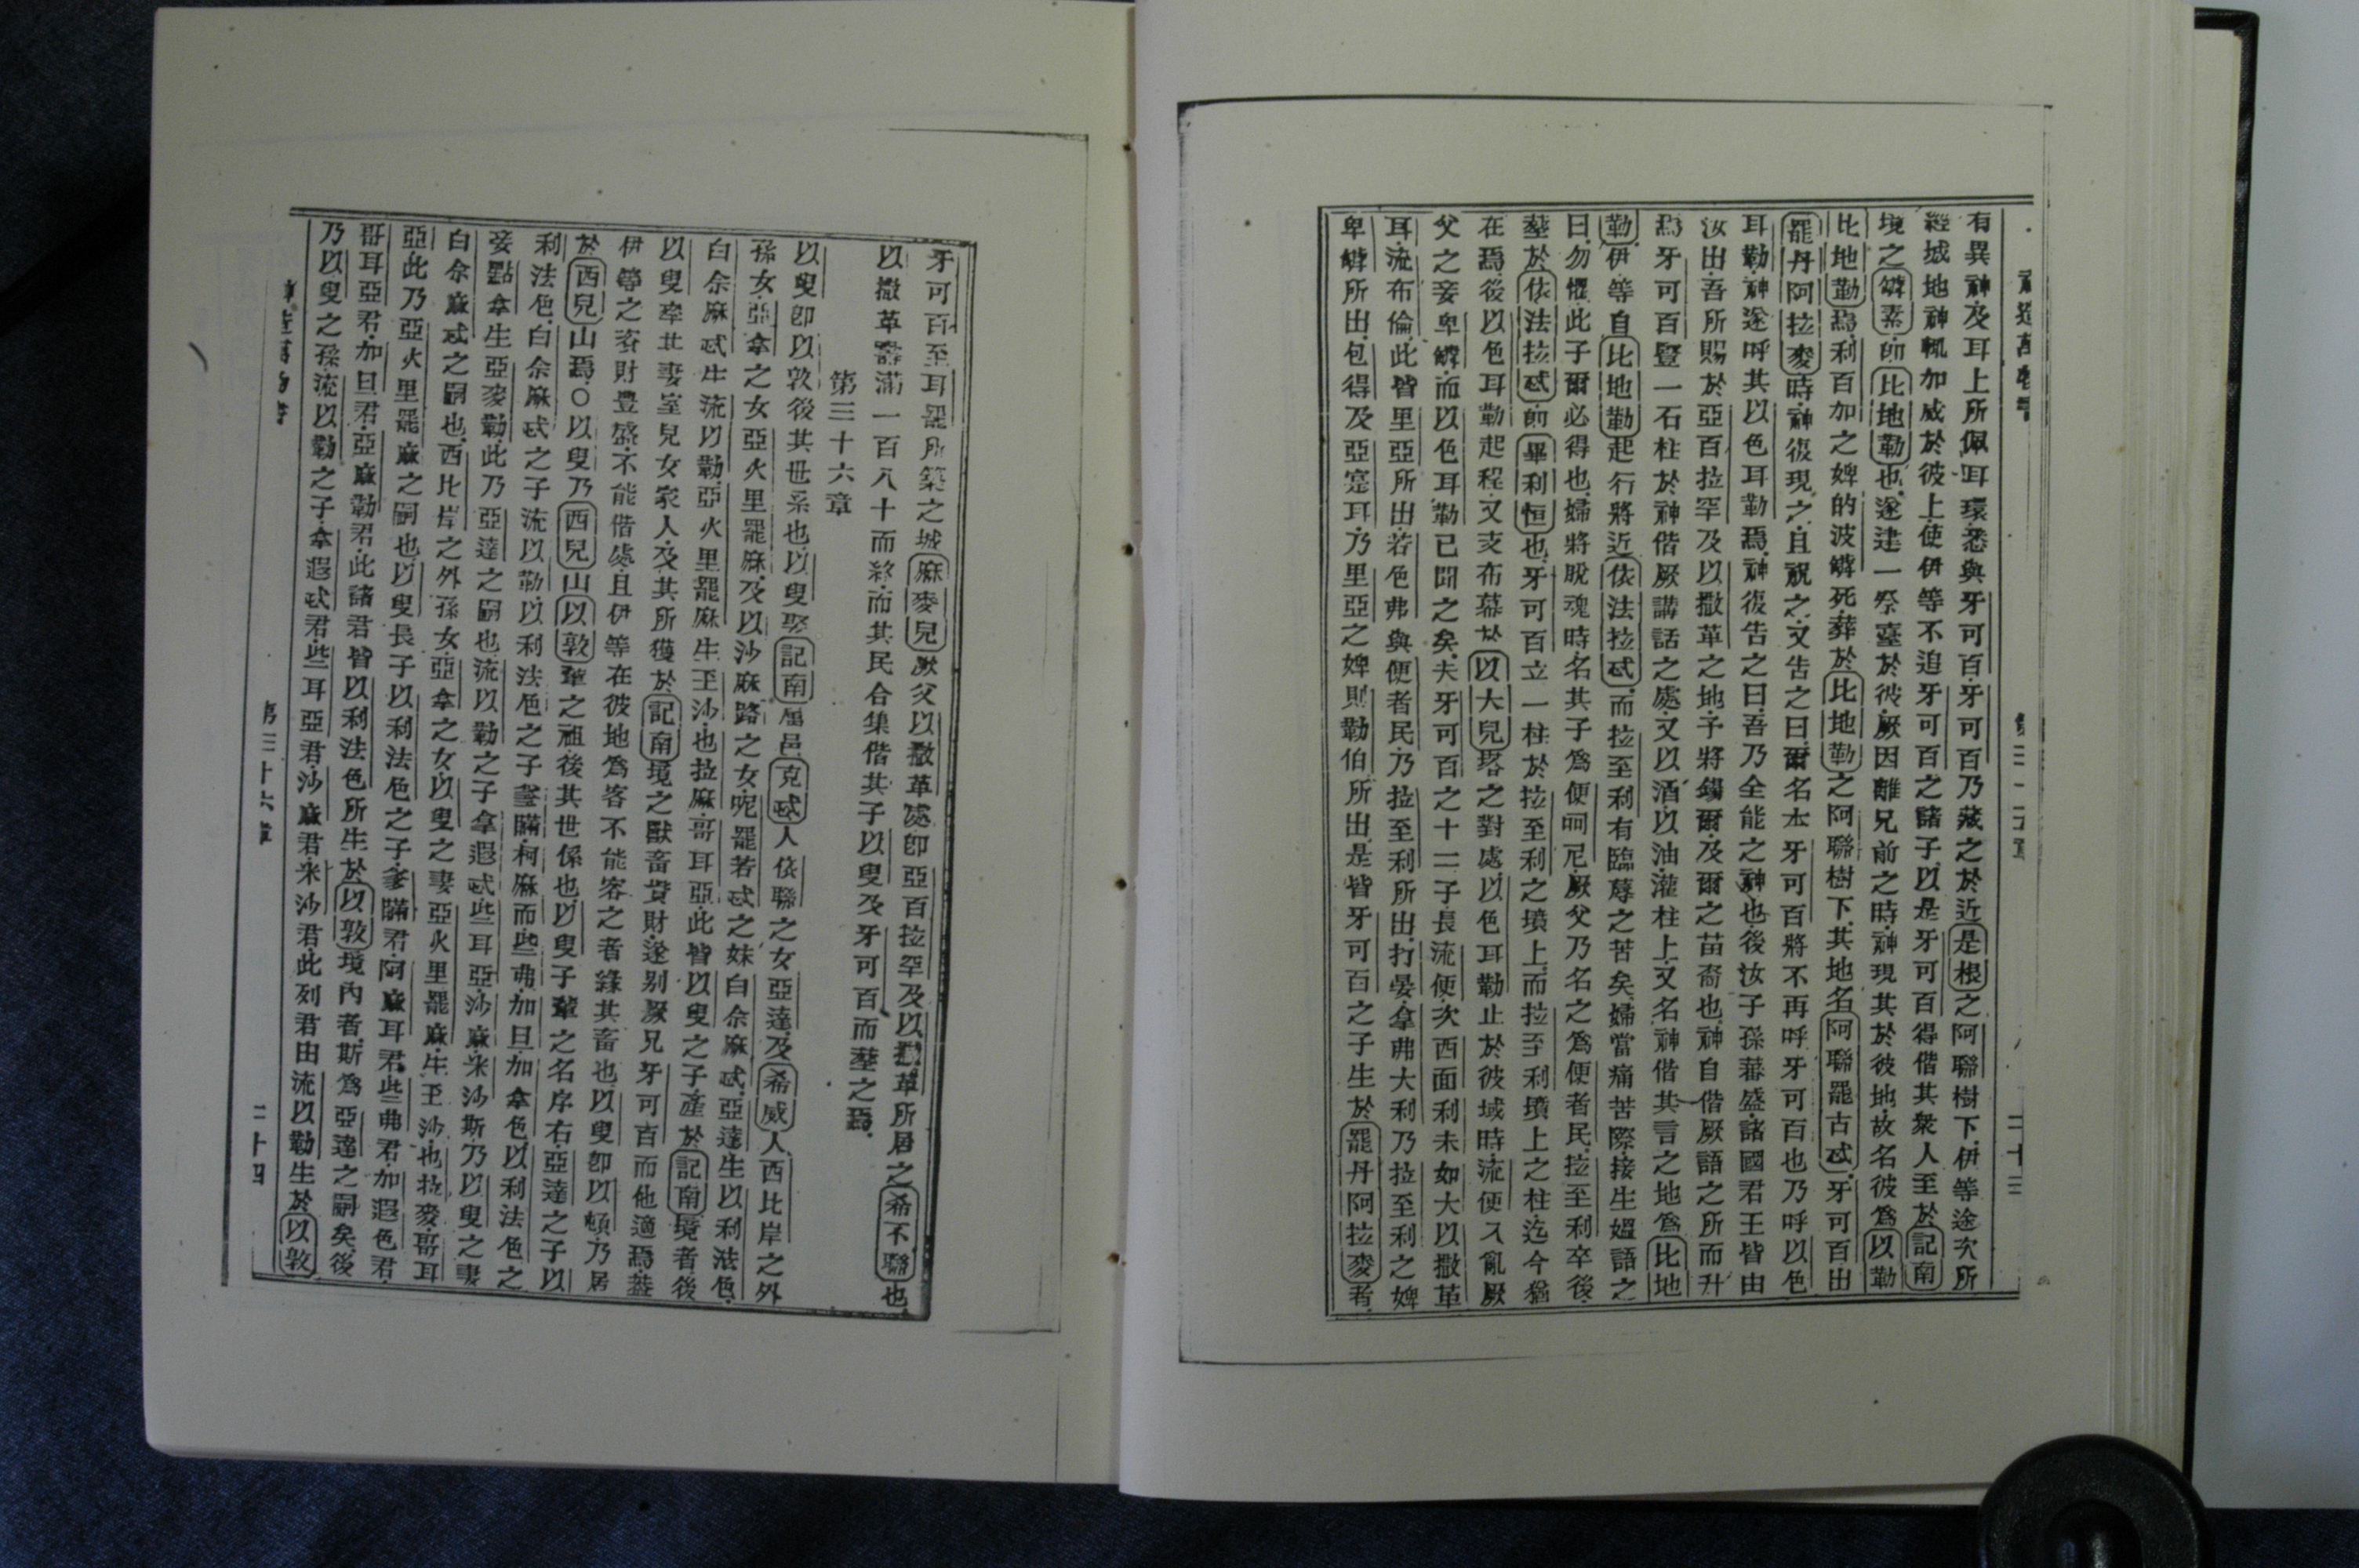 神造萬物書 第三十五章 二十三
有異神及耳上所佩耳環悉與牙可百牙可百乃藏之於近是根之阿聯樹下伊等途次所
經城地神輒加威於彼上使伊等不追牙可百之諸子以是牙可百得偕其衆人至於記南
境之鱗素卽比地勒也遂建一祭臺於彼厥因離兄前之時神現其於彼地故名彼爲以勒
比地勒焉利百加之婢的波鱗死葬於比地勒之阿聯樹下其地名阿聯罷古忒牙可百出
罷丹阿拉麥時神復現之且祝之又告之曰爾名本牙可百將不再呼牙可百也乃呼以色
耳勒神遂呼其以色耳勒焉神復告之曰吾乃全能之神也後汝子孫蕃盛諸國君王皆由
汝出吾所賜於亞百拉罕及以撒革之地予將錫爾及爾之苗裔也神自偕厥語之所而升
焉牙可百豎一石柱於神偕厥講話之處又以酒以油灌柱上又名神偕其言之地爲比地
勒伊等自比地勒起行將近依法拉忒而拉至利有臨蓐之苦矣婦當痛苦際接生媼語之
曰勿懼此子爾必得也婦將脫魂時名其子爲便呵尼厥父乃名之爲便者民拉至利卒後
塟於依法拉忒卽畢利恒也牙可百立一柱於拉至利之墳上而拉至利墳上之柱迄今猶
在焉後以色耳勒起程又支布幕於以大兒塔之對處以色耳勒止於彼域時流便入亂厥
父之妾卑鱗而以色耳勒已聞之矣夫牙可百之十二子長流便次西面利未如大以撒革
耳流布倫此皆里亞所出若色弗與便者民乃拉至利所出打晏拿弗大利乃拉至利之婢
卑鱗所出包得及亞寔耳乃里亞之婢則勒伯所出是皆牙可百之子生於罷丹阿拉麥者
牙可百至耳罷所築之城麻麥兒厥父以撒革處卽亞百拉罕及以撒革所居之希不聯也
以撒革壽滿一百八十而終而其民合集偕其子以叟及牙可百而塟之焉
第三十六章
以叟卽以敦後其世系也以叟娶記南屬邑克忒人依聯之女亞達及希威人西比岸之外
孫女亞拿之女亞火里罷麻及以沙麻路之女呢罷若忒之妹白佘麻忒亞達生以利法色
白佘麻忒生流以勒亞火里罷麻生玊沙也拉麻哥耳亞此皆以叟之子產於記南境者後
以叟牽其妻室兒女家人及其所獲於記南境之獸畜貲財遂别厥兄牙可百而他適焉葢
伊等之資財豐盛不能偕處且伊等在彼地爲客不能容之者緣其畜也以叟卽以頓乃居
於西兒山焉○以叟乃西兒山以敦輩之祖後其世係也以叟子輩之名序右亞達之子以
利法色白佘麻忒之子流以勒以利法色之子爹瞞柯麻而些弗加旦加拿色以利法色之
妾點拿生亞麥勒此乃亞達之嗣也流以勒之子拿遐忒些耳亞沙麻米沙斯乃以叟之妻
白佘麻忒之嗣也西比岸之外孫女亞拿之女以叟之妻亞火里罷麻生玊沙也拉麥哥耳
亞此乃亞火里罷麻之嗣也以叟長子以利法色之子爹瞞君阿麻耳君些弗君加遐色君
哥耳亞君加旦君亞麻勒君此諸君皆以利法色所生於以敦境內者斯爲亞達之嗣矣後
乃以叟之孫流以勒之子拿遐忒君些耳亞君沙麻君米沙君此列君由流以勒生於以敦
神造萬物書 第三十六章 二十四